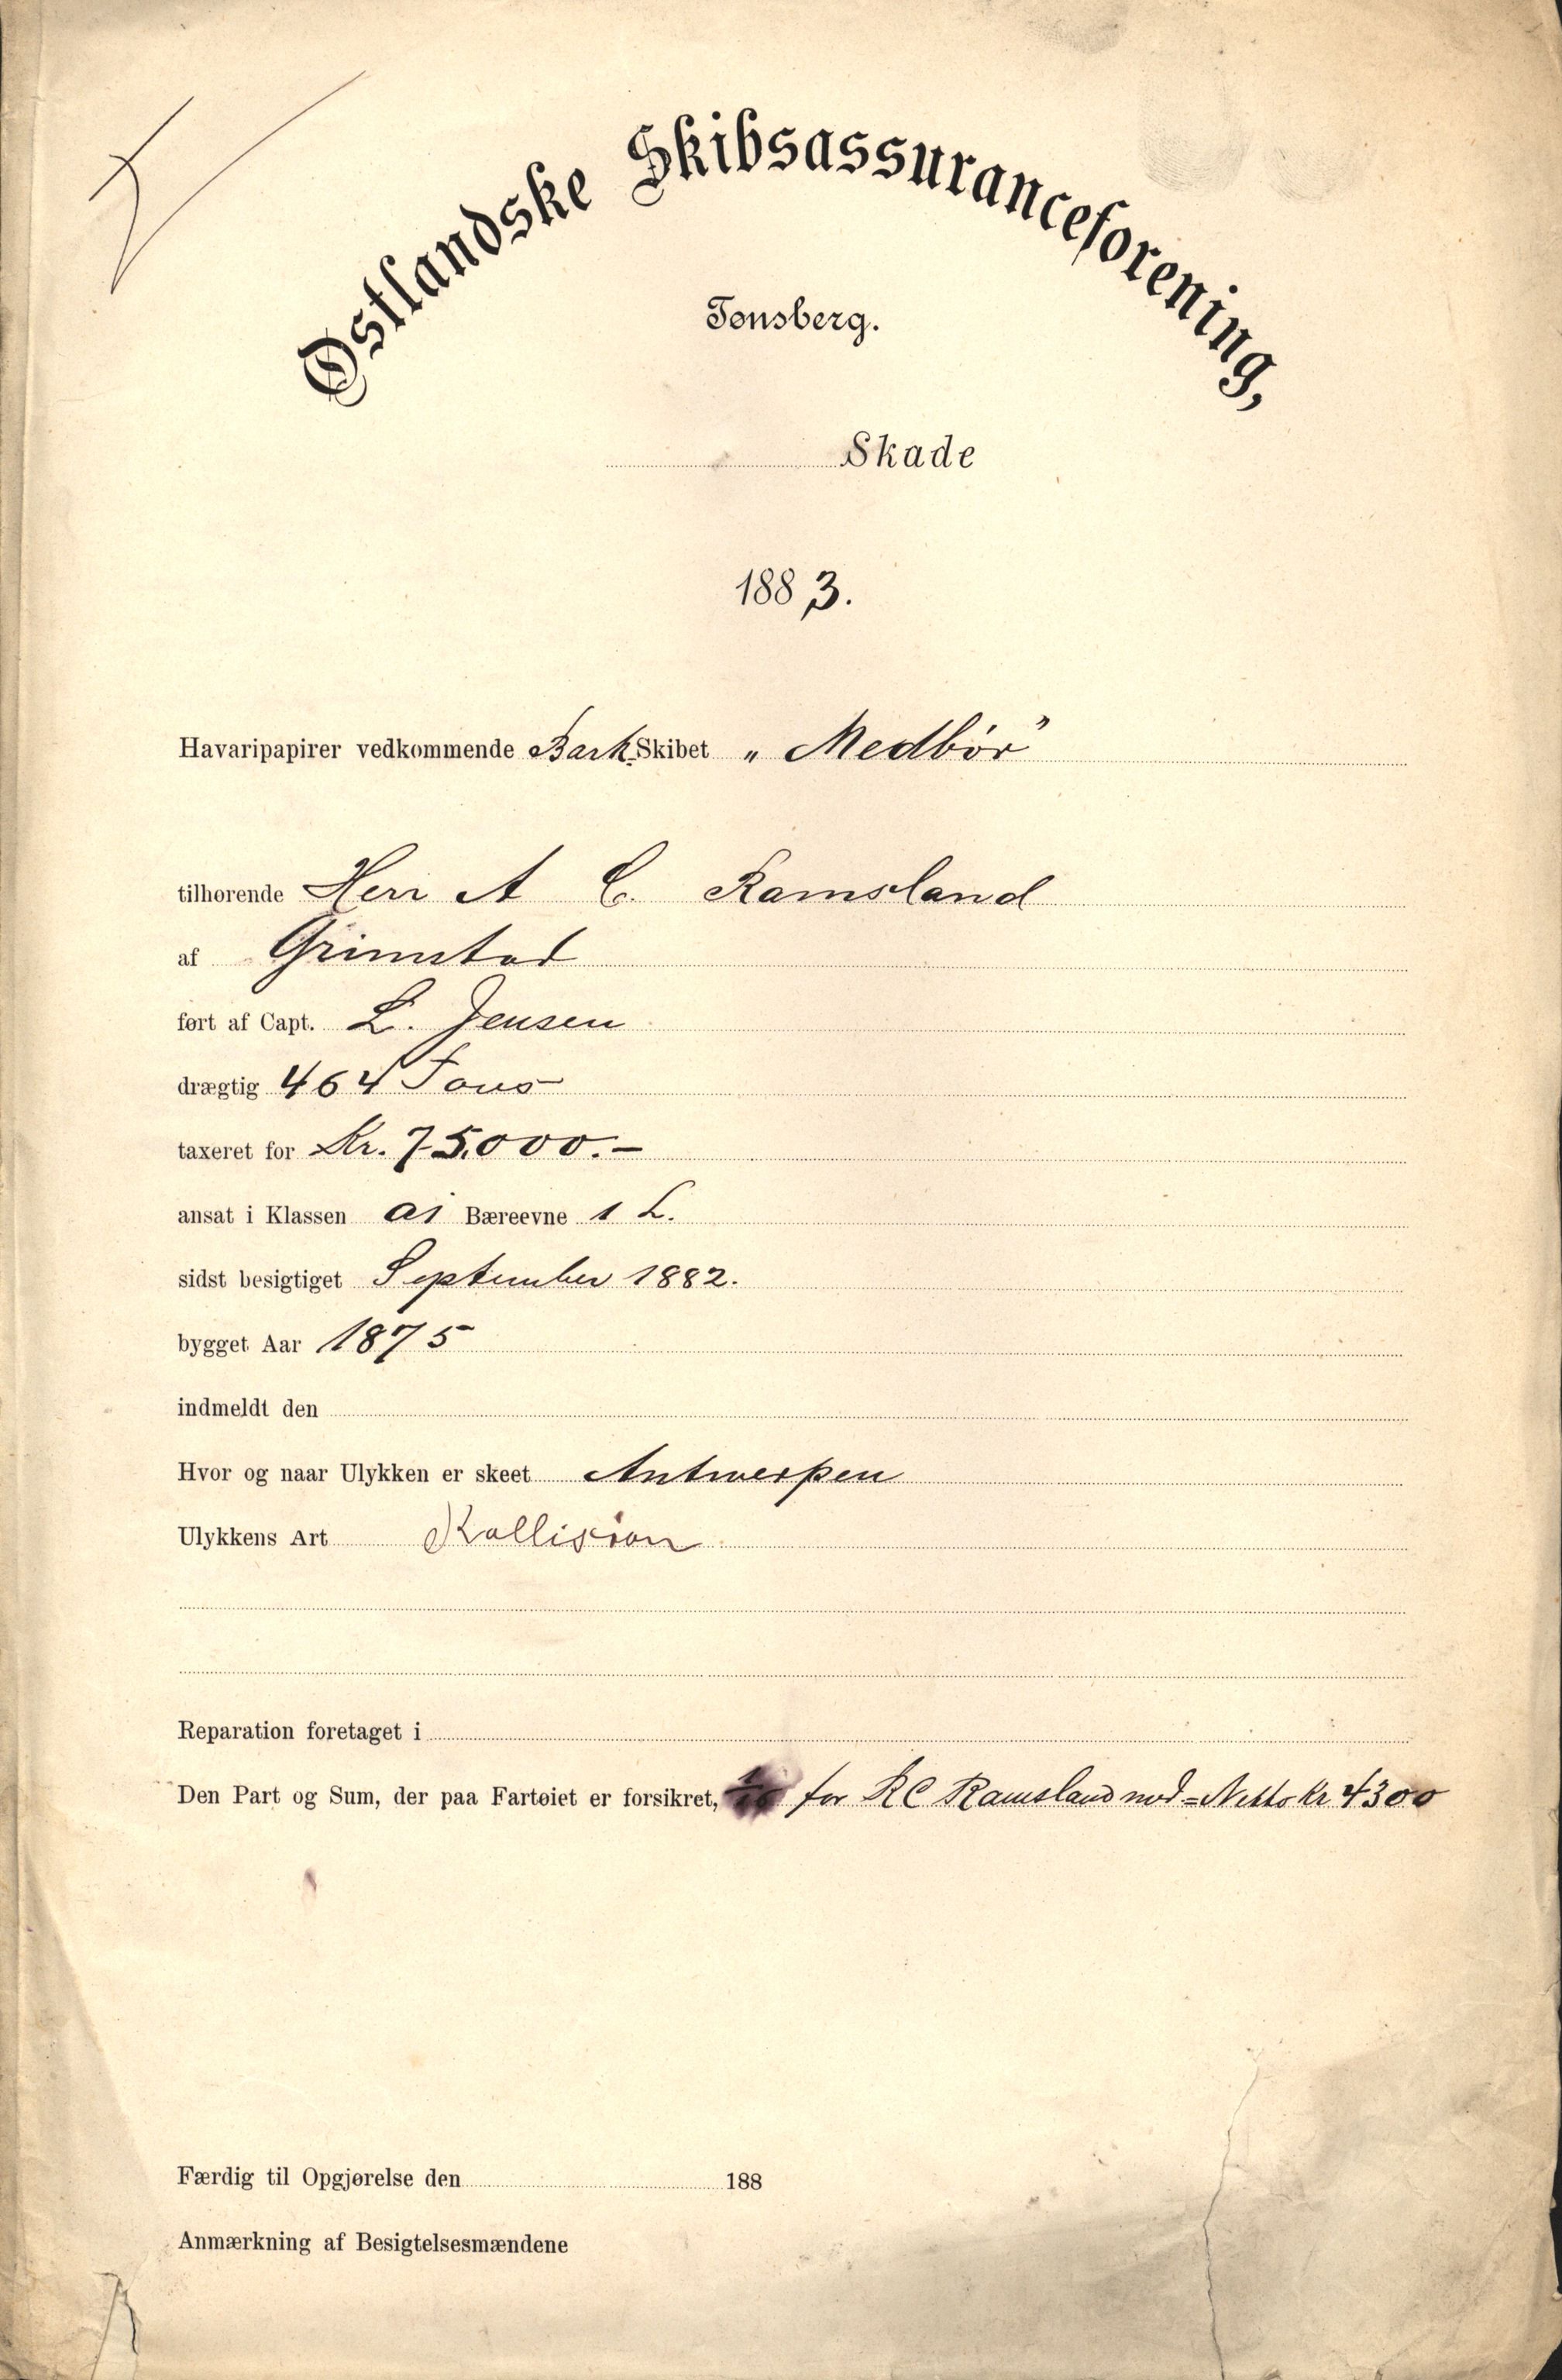 Østlandske Skibsassuranceforening,
Tønsberg.
Skade
1883.
Havaripapirer vedkommende Bark-Skibet „Medbör”
tilhørende Herr A C. Ramsland
af Grimstad
ført af Capt. L. Jensen
drægtig 464 Tons
taxeret for Kr. 75.000.–
ansat i Klassen a1 Bæreevne 1 L.
sidst besigtiget September 1882.
bygget Aar 1875
indmeldt den
Hvor og naar Ulykken er skeet Antwerpen
Ulykkens Art Kollision
Reparation foretaget i
Den Part og Sum, der paa Fartøiet er forsikret, for RC Ramsland mod = Netto Kr 4300
Færdig til Opgjørelse den 188
Anmærkning af Besigtelsesmændene